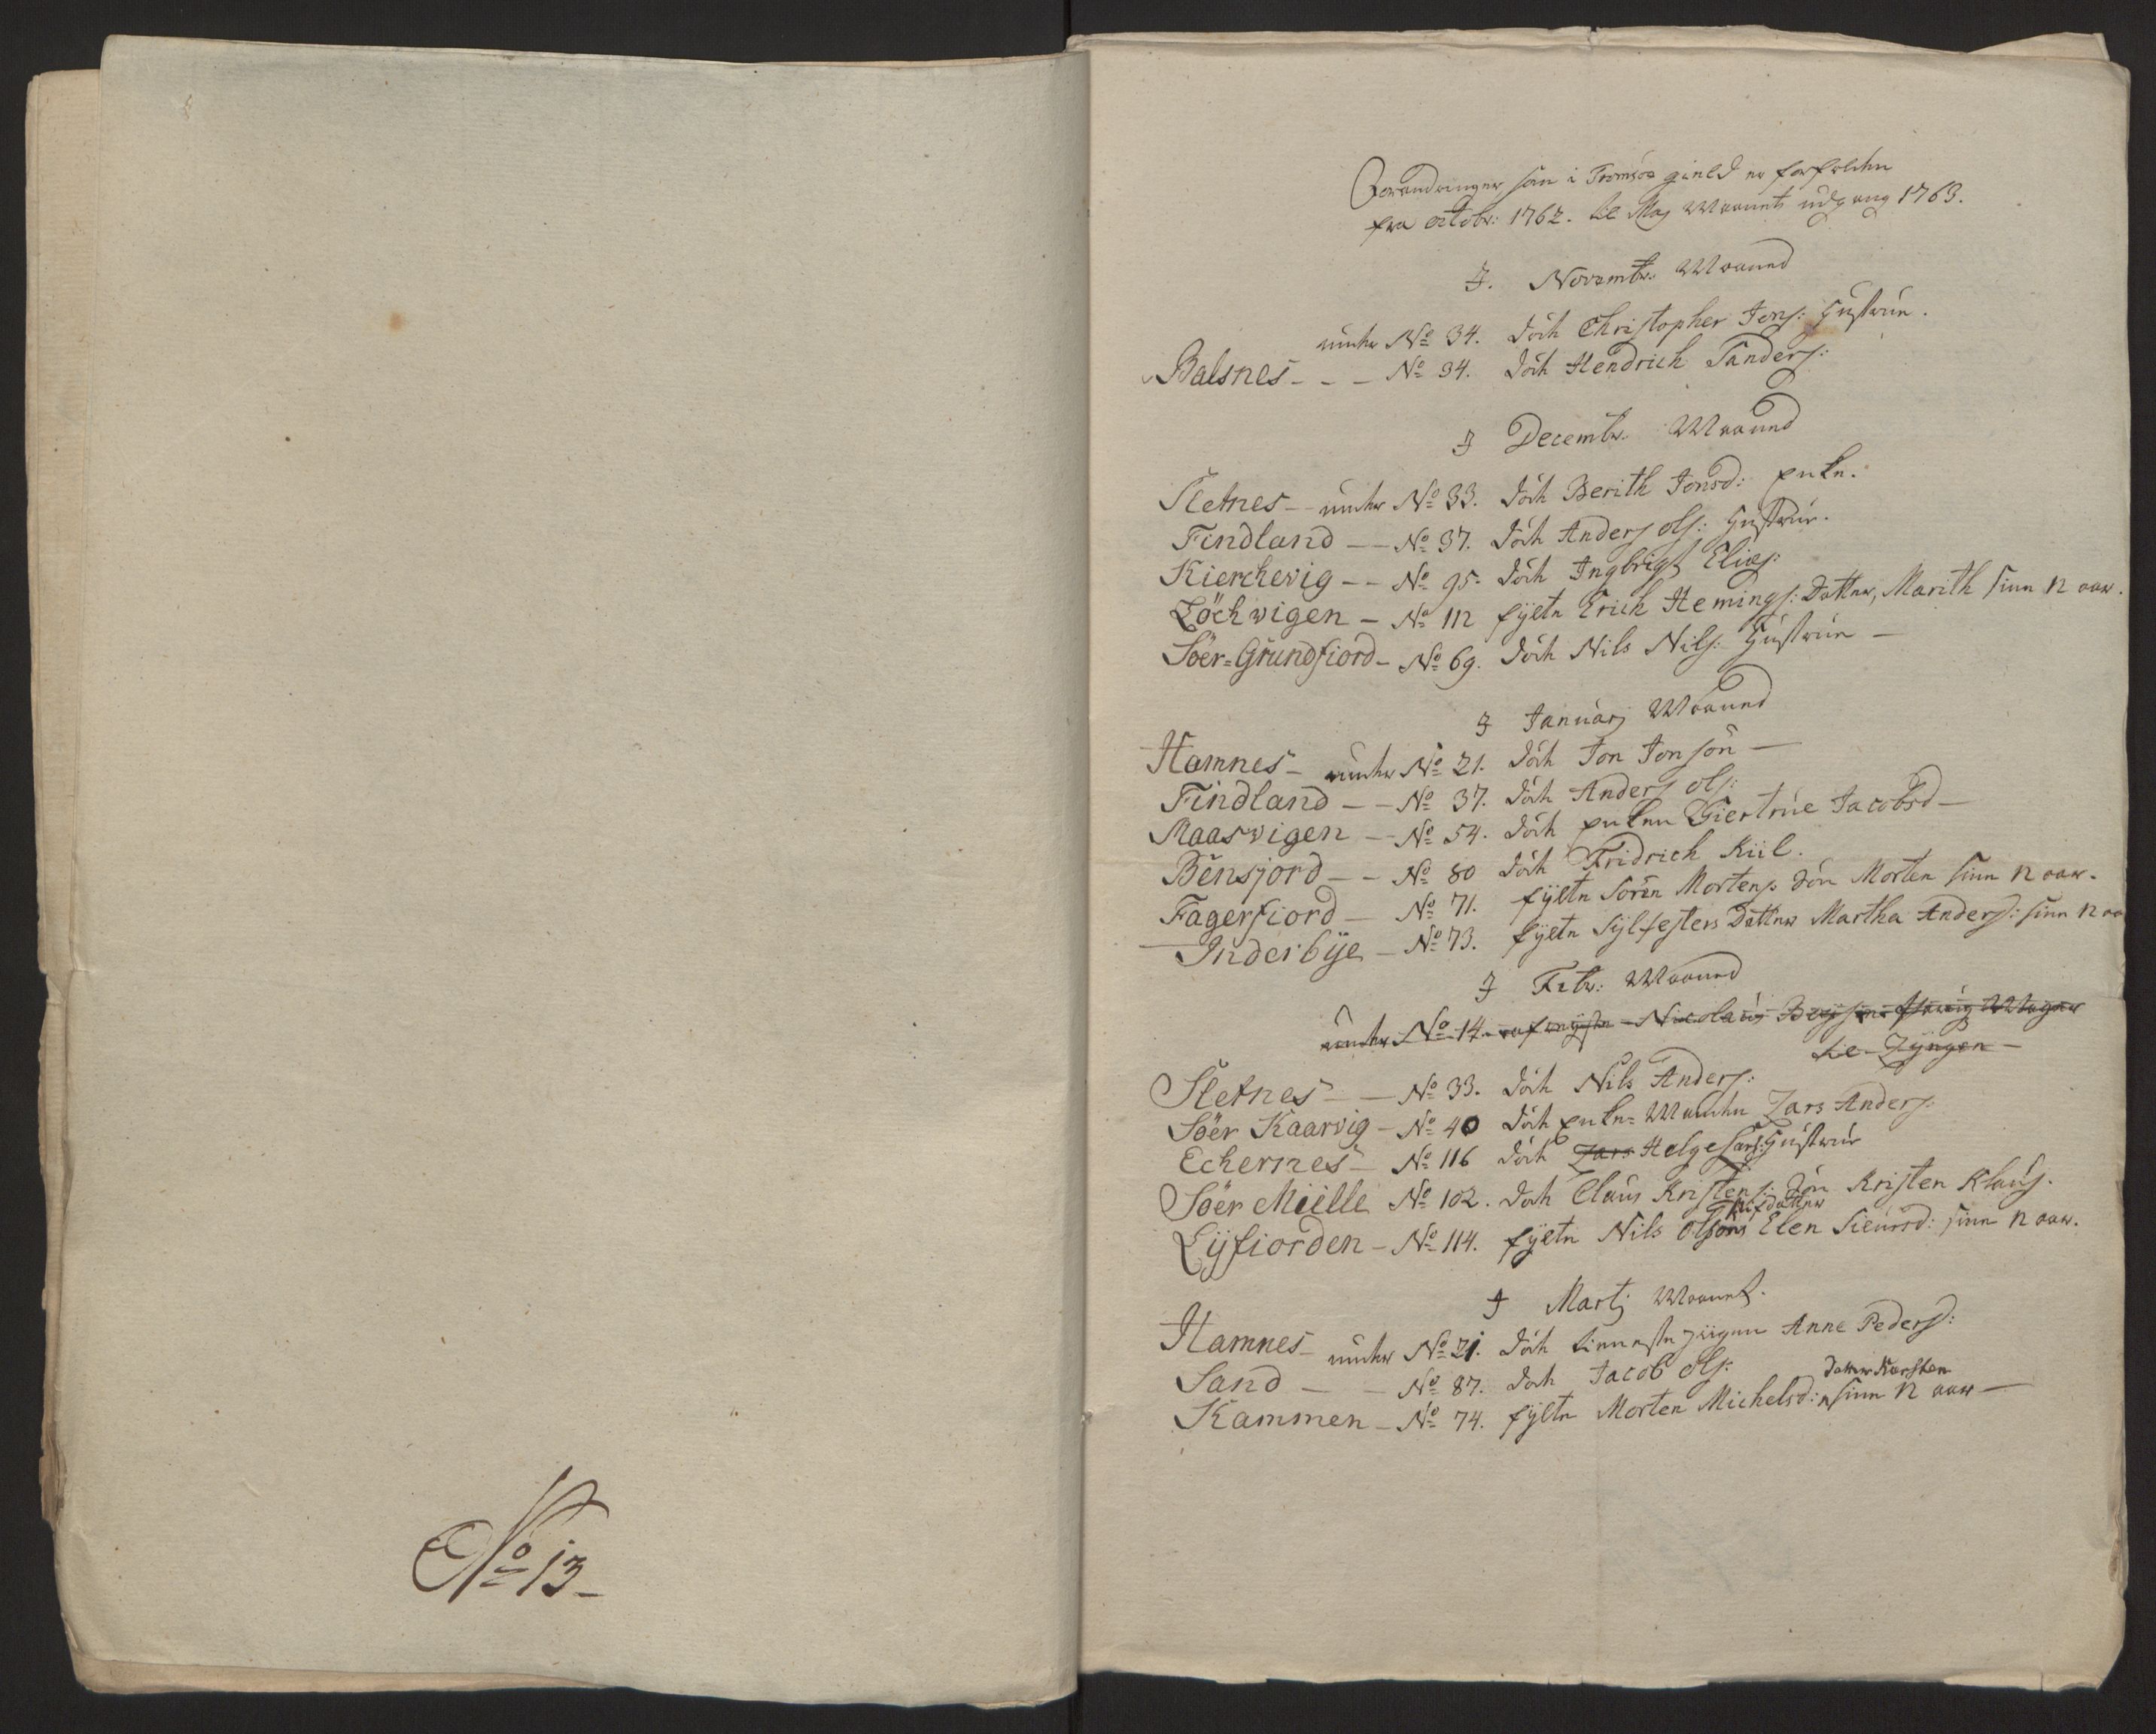 No 13-
Forandringer som i Tromsøe gield er forfalden
fra octobr: 1762. til Maj Maanets udgang 1763.
I. Novembr: Maaned
under No 34. døde Christopher Jons: Hustrue.
Balsnes - - - No 34. døde Hendrich Sanders:
I Decembr. Maaned
Sletnes - under No 33. døde Berith Jonsd: enke.
Findland - - No 37. døde Anders ols: Hustrue.
Kierchevig - - No 95. døde Ingbrigt Elias:
Löchvigen - No 112 fylte Erich Hemings: Datter, Marith sine 12 aar.
Söer=Grundfiord - No 69. døde Nils Nils: Hustrue -
I Januarj Maaned
Hamnes - under No 21. døde Jon Jonsön -
Findland - - No 37. døde Anders ols:
Maasvigen - No 54. døde enken Giertrue Jacobsd -
Bensjord - - No 80 døde Fridrich Kiil.
Fagerfiord - No 71. fylte Sören Mortens Sön Morten sine 12 aar.
Inderbÿe - No 73. fylte Sylfesters Datter Martha Anders: sine 12 aa
I Febr: Maaned
under No 14. Nicolaus
til Lyngen -
Sletnes - - No 33. døde Nils Anders:
Söer Kaarvig - No 40 døde enke=Manden Lars Anders:
Echernes - No 116 døde Lars Helge Lars: Hustrue
Söer Mielle No 102. døde Claus Kristens: Sön Kristen Klaus.
Stifdatter
Lÿfiorden - No 114. fylte Nils Olsöns Elen Siursd: sine 12 aar.
I Martj Maanet.
Hamnes - under No 21. døde tieneste pigen Anne Pedersd:
Sand - - No 87. døde Jacob ols:
Datter Karsten
Kammen - No 74. fylte Morten Michelsd: sine 12 aar -